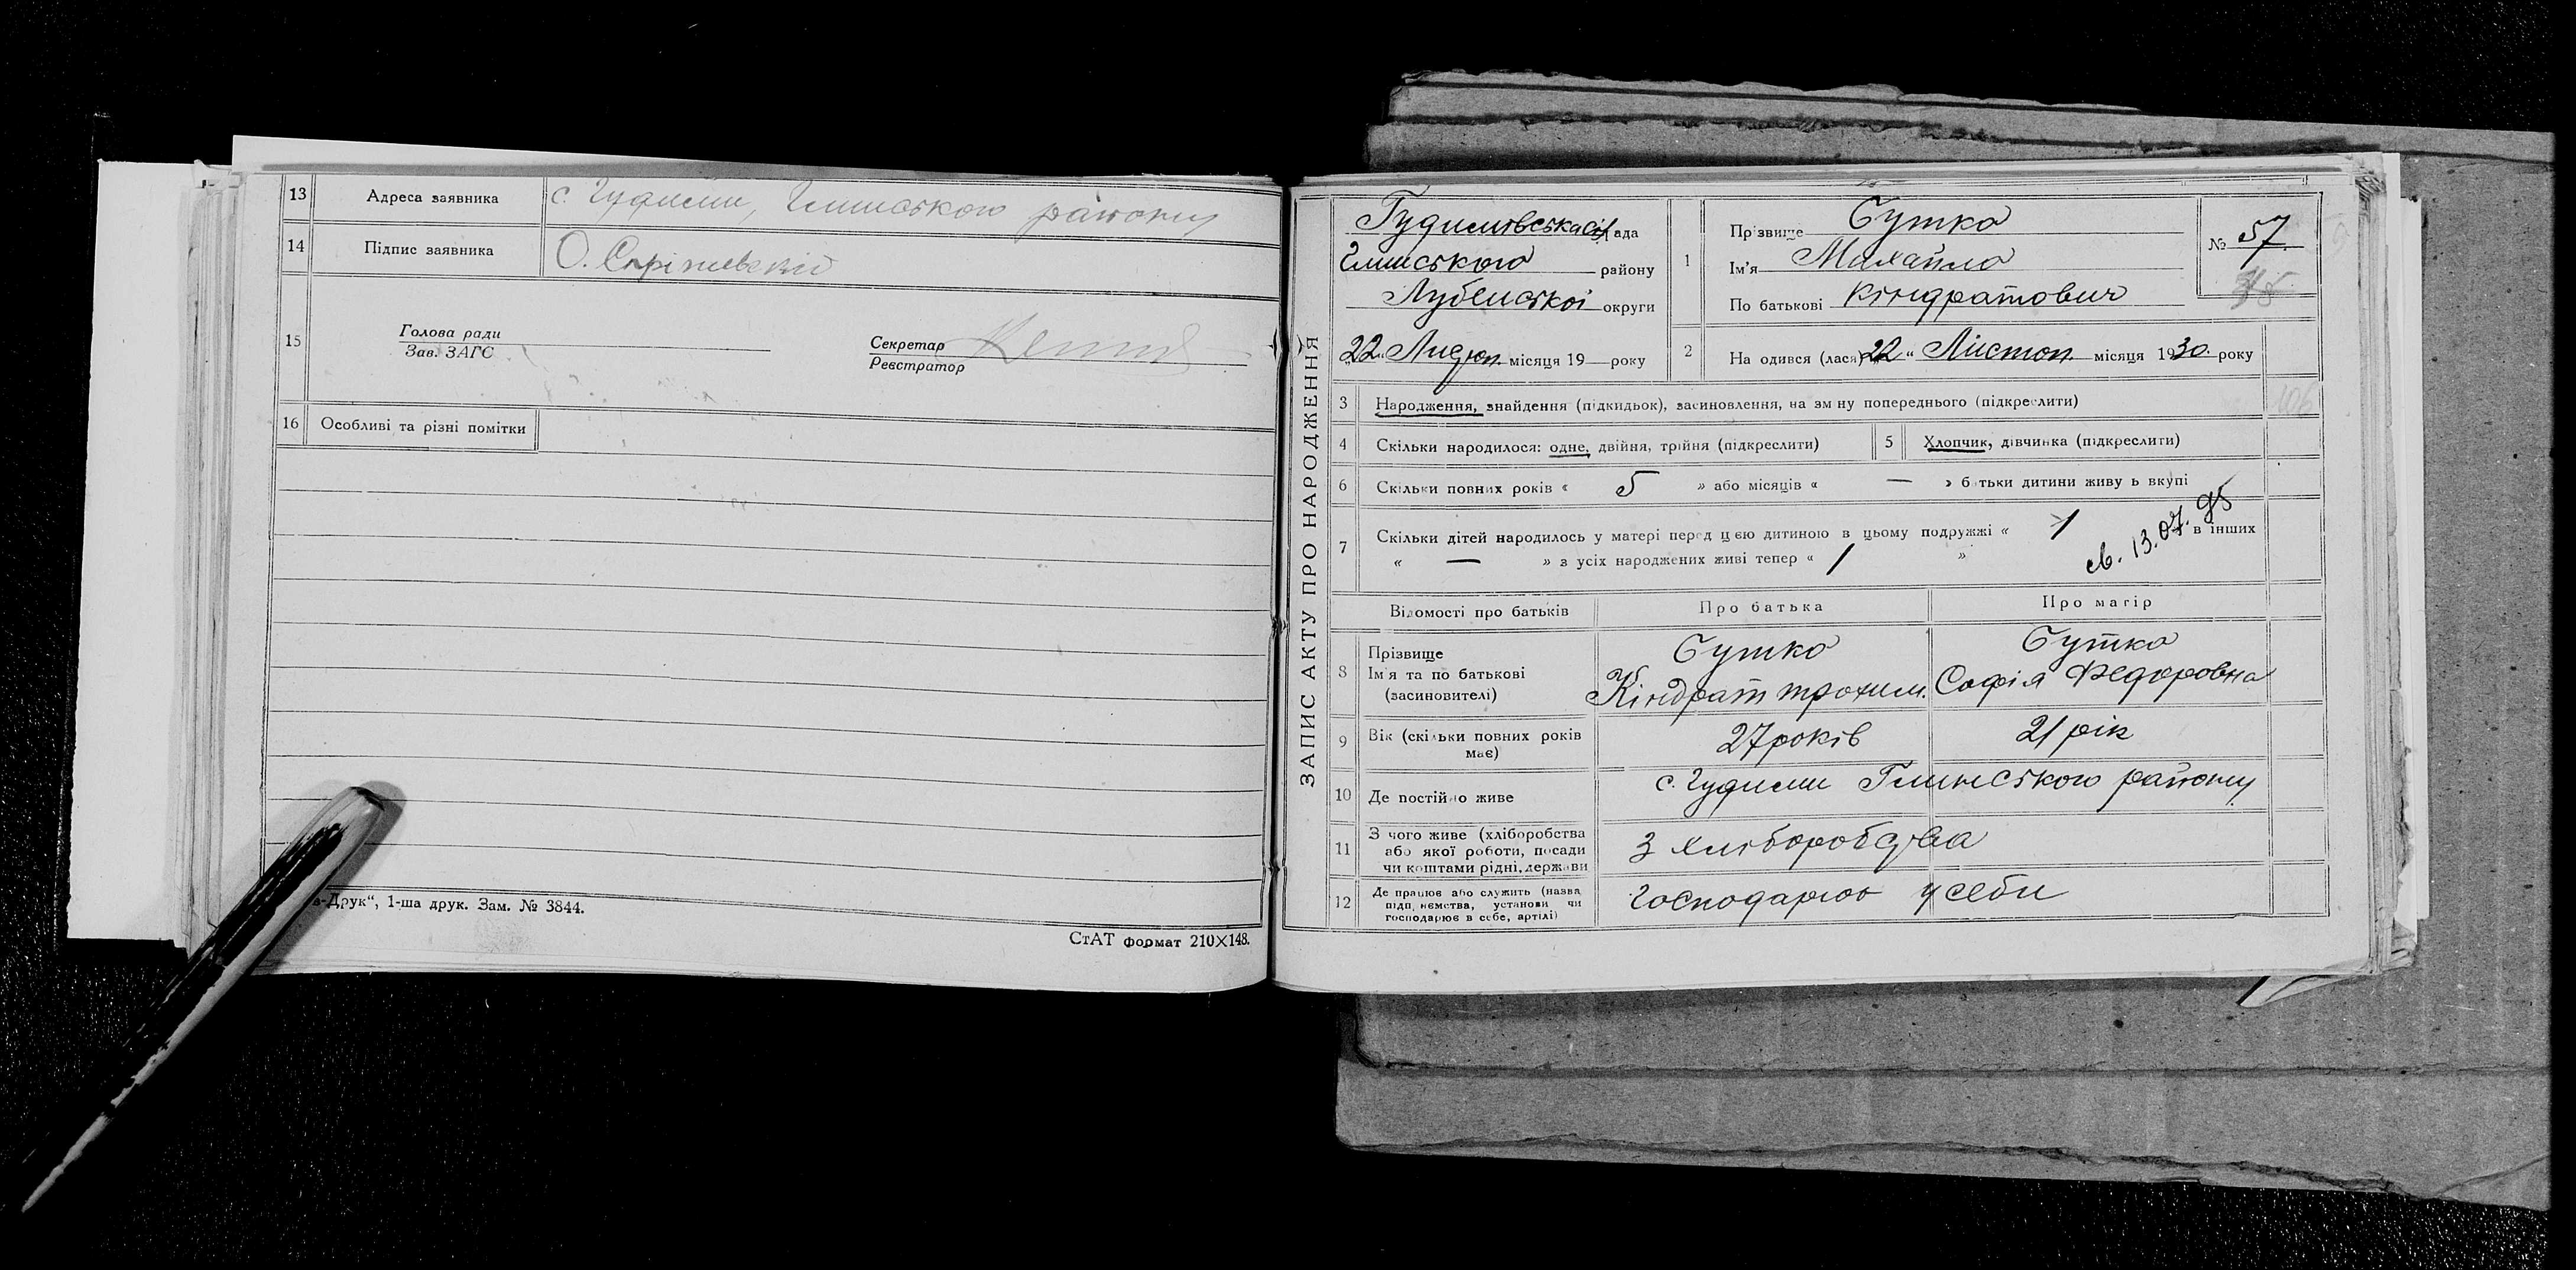 13 Адреса заявника с. Гудими, Глинського району
14 Підпис заявника О.
15 Голова ради
Зав. ЗАГС
Секретар
Реєстратор
16 Особливі та різні помітки
-Друк“, 1-ша друк. Зам. № 3844.
СтАТ формат 210×148.
ЗАПИС АКТУ ПРО НАРОДЖЕННЯ
Гудимівська с/рада
Глинського району
Лубенської округи
„22“ місяця 19 року
1 Прізвище Сутко
Ім'я Михайло
По батькові Кіндратович
№ 57
2 На одився (лася) „22“ Листоп. місяця 1930. року
3 Народження, знайдення (підкидьок), засиновлення, на зм ну попереднього (підкреслити)
4 Скільки народилося: одне, двійня, трійня (підкреслити)
5 Хлопчик, дівчинка (підкреслити)
6 Скільки повних років « 5 » або місяців « — » б тьки дитини живу ь вкупі
7 Скільки дітей народилось у матері перед цією дитиною в цьому подружжі « 1 в інших
« — » з усіх народжених живі тепер « 1 »
св. 13.07.95
Відомості про батьків Про батька Про матір
8 Прізвище
Ім'я та по батькові
(засиновителі)
Сутко
Кіндрат Трохим.
Сутко
Софія Федоровна
9 Вік (скільки повних років
має)
27 років
21 рік
10 Де постійно живе с. Гудими Глинського району
11 З чого живе (хліборобства
або якої роботи, посади
чи коштами рідні, держави
З хліборобства
12 Де працює або служить (назва
підп, немства, установи чи
господарює в себе, артілі)
Господарює у себи